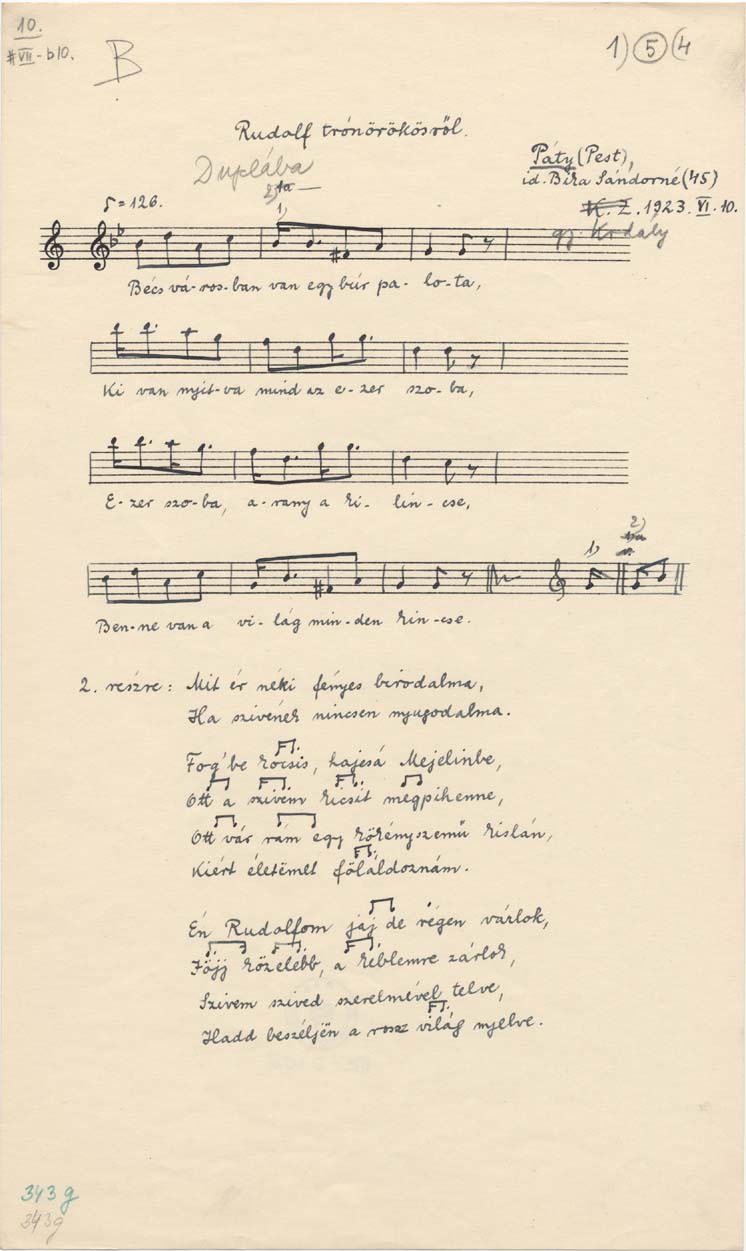 10.
#VII-b10.
B
1) 5 (4
Rudolf trónörökösről.
Duplába
Páty (Pest),
id. Bira Sándorné (45)
K. Z. 1923. VI. 10.
gy. Kodály
♪=126.
2) 1a
1)
Bécs vá-ros-ban van egy búr pa- lo-ta,
Ki van nyit-va mind az e-zer szo-ba,
E-zer szo-ba, a-rany a ki- lin-cse,
1) 2)
Ben-ne van a vi-lág min-den kin-cse.
2. részre: Mit ér néki fényes birodalma,
Ha szivének nincsen nyugodalma.
Fog' be kocsis, hajcsá Mejelinbe,
Ott a szivem kicsit megpihenne,
Ott vár rám egy kökényszemű kislán,
Kiért életëmet föláldoznám.
Én Rudolfom jaj de régen várlok,
Föjj közelébb, a këblemre zárlok,
Szivem szived szerelmével telve,
Hadd beszéljën a rossz világ nyelve.
343g
343g